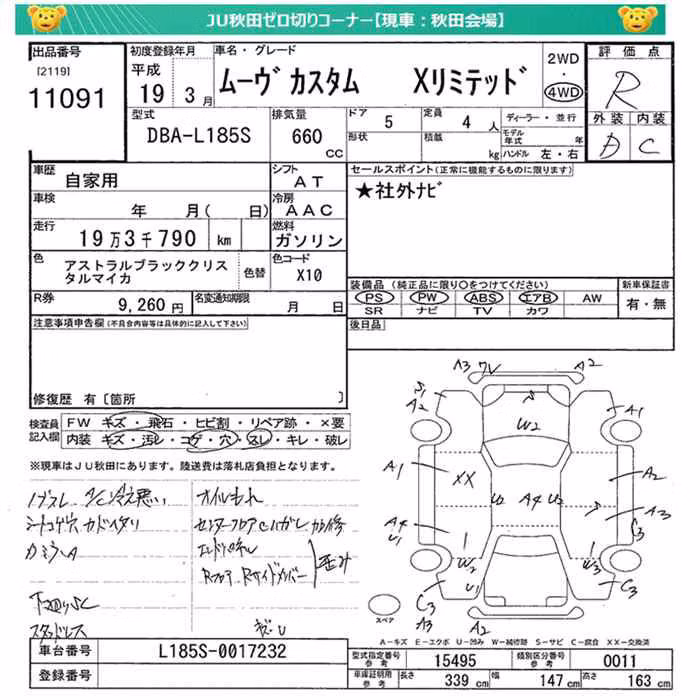 JU秋田ゼロ切りコーナー【現車：秋田会場】
出品番号 初度登録年月 車名・グレード 評価点
[2119] 平成 ムーヴ カスタム Xリミテッド 2WD・4WD R
11091 19年 3月
型式 排気量 ドア 5 定員 4人 ディーラー・並行 外装 内装
DBA-L185S 660cc 形状 積載 kg モデル年式 年 D C
ハンドル 左・右
車歴 自家用 シフト AT セールスポイント(正常に機能するものに限ります)
車検 年 月( 日) 冷房 AAC ★社外ナビ
走行 19万3千790 km 燃料 ガソリン
色 アストラルブラッククリスタルマイカ 色替 色コード X10
装備品 (純正品に限り○をつけてください) 新車保証書
R券 9,260円 名変通知期限 月 日 PS PW ABS エアB AW 有・無
SR ナビ TV カワ
注意事項申告欄(不具合内容等は具体的に記入して下さい) 後日品
修復歴 有 [箇所 ]
検査員記入欄 FW キズ・飛石・ヒビ割・リペア跡・×要
内装 キズ・汚レ・コゲ・穴・スレ・キレ・破レ
※現車はJU秋田にあります。陸送費は落札店負担となります。
A/C冷え悪い オイルもれ
下回りSC
スタッドレス
A3 ワレ A2
A2 A1
W2
A1 XX U2 A4 U2 A2
A4 U1 A3 C3
W2 U1 W3
C3 A3 A2 C3
スペア
A-キズ E-エクボ U-凹み W-補修跡 S-サビ C-腐食 XX-交換済
車台番号 L185S-0017232 型式指定番号 参考 15495 類別区分番号 参考 0011
登録番号 車庫証明用 参考 長さ 339 cm 幅 147 cm 高さ 163 cm